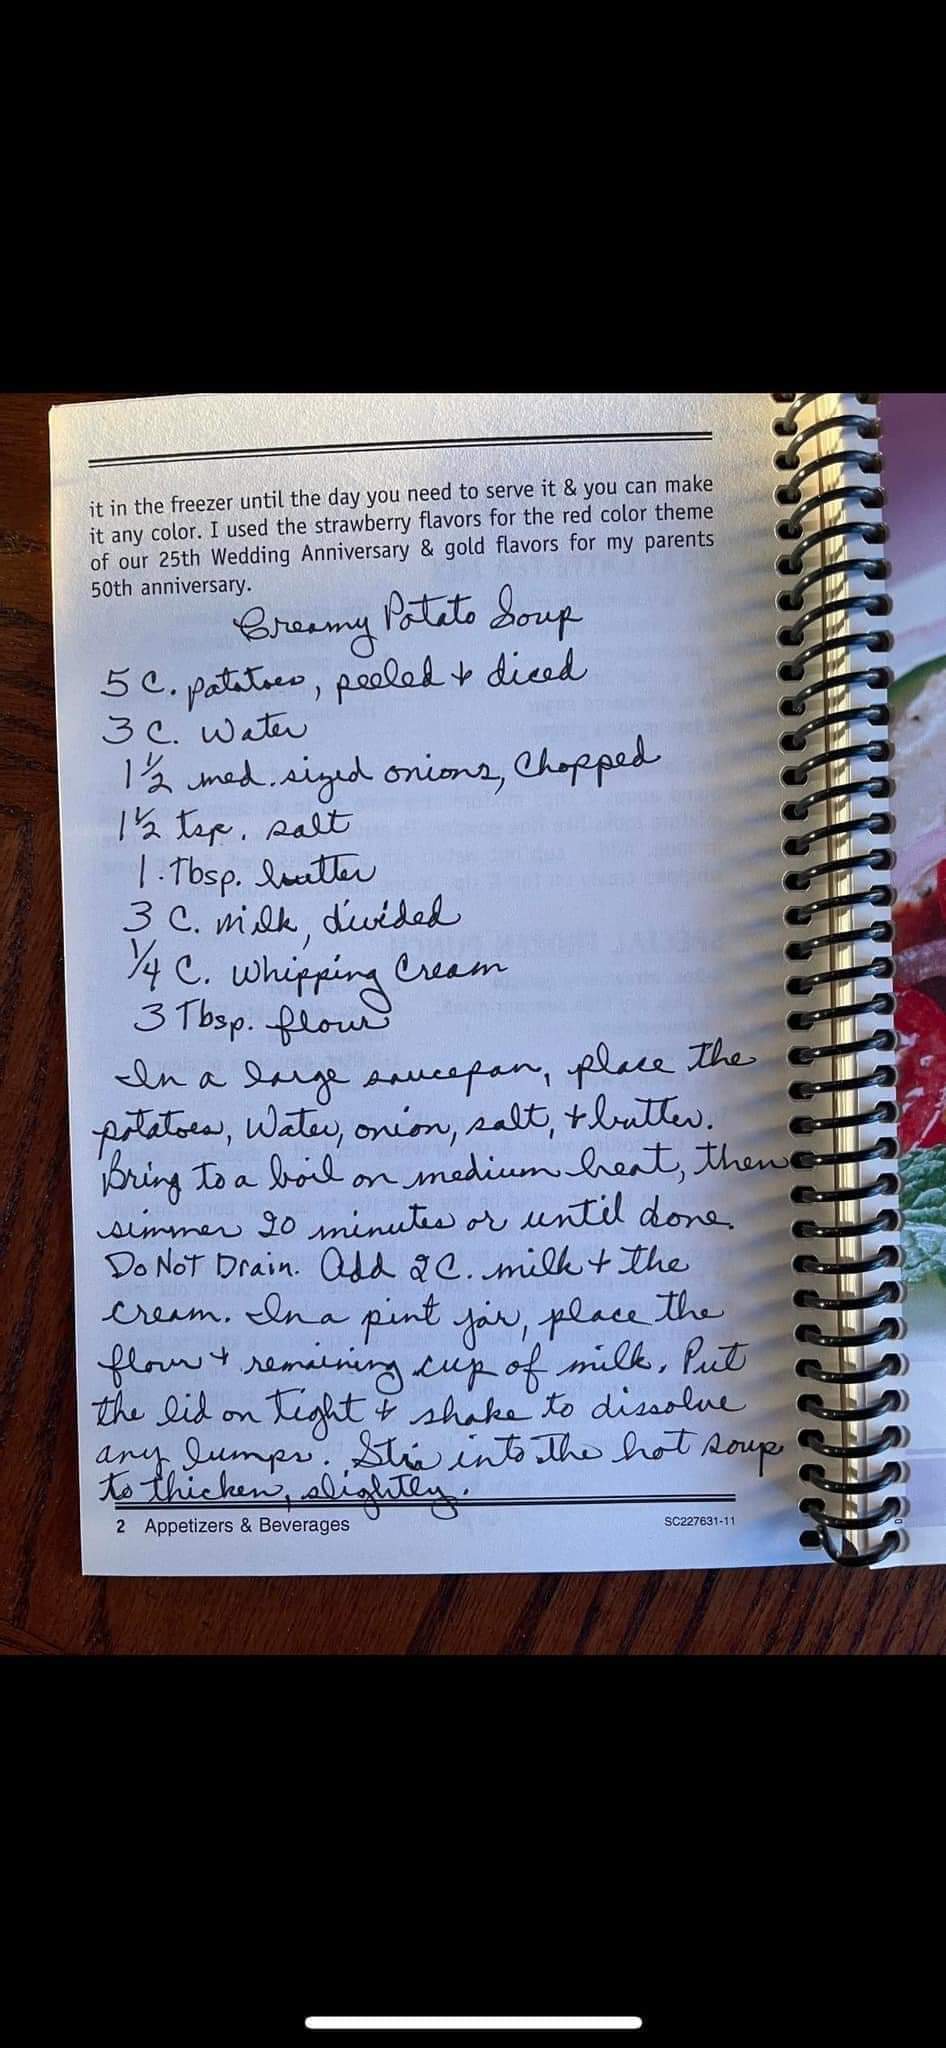 it in the freezer until the day you need to serve it & you can make
it any color. I used the strawberry flavors for the red color theme
of our 25th Wedding Anniversary & gold flavors for my parents
50th anniversary.
Creamy Potato Soup
5 C. potatoes, peeled & diced
3 C. Water
1 1/2 med. sized onions, Chopped
1 1/2 tsp. salt
1 Tbsp. butter
3 C. milk, divided
1/4 C. Whipping Cream
3 Tbsp. flour
In a large saucepan, place the
potatoes, Water, onion, salt, & butter.
Bring to a boil on medium heat, then
simmer 20 minutes or until done.
Do Not Drain. Add 2 C. milk & the
cream. In a pint jar, place the
flour & remaining cup of milk. Put
the lid on tight & shake to dissolve
any lumps. Stir into the hot soup
to thicken, slightly.
2 Appetizers & Beverages
SC227631-11